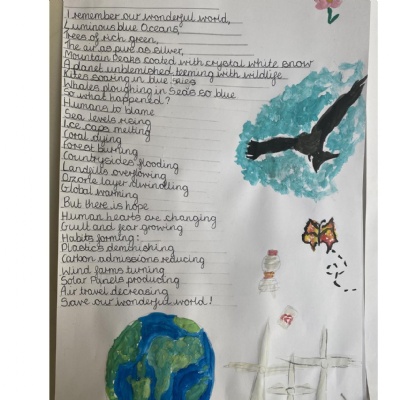 I remember our wonderful world,
Luminous blue Oceans,
Trees of rich green,
The air as pure as silver,
Mountain Peaks coated with crystal white snow
A planet unblemished teeming with wildlife
Kites soaring in blue skies
Whales ploughing in Seas so blue
So what happened?
Humans to blame
Sea levels rising
Ice caps melting
Coral dying
Forest burning
Countrysides flooding
Landfills overflowing
Ozone layer dwindling
Global warming
But there is hope
Human hearts are changing
Guilt and fear growing
Habits forming:
Plastics deminishing
Carbon admissions reducing
Wind farms turning
Solar Panels producing
Air travel decreasing
Save our wonderful world!